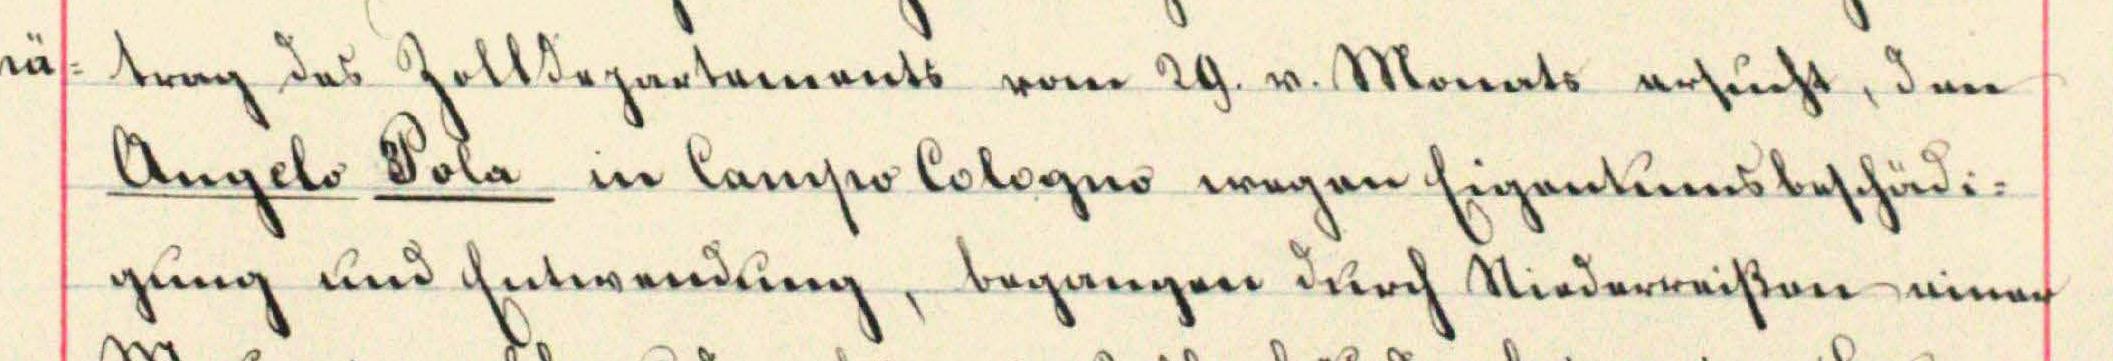 trag des Zolldepartements vom 29. v. Monats ersucht, den
Angelo Pola in Campo Cologno wegen Eigentumsbeschädi-
gung und Entwendung, begangen durch Niederreißen einer